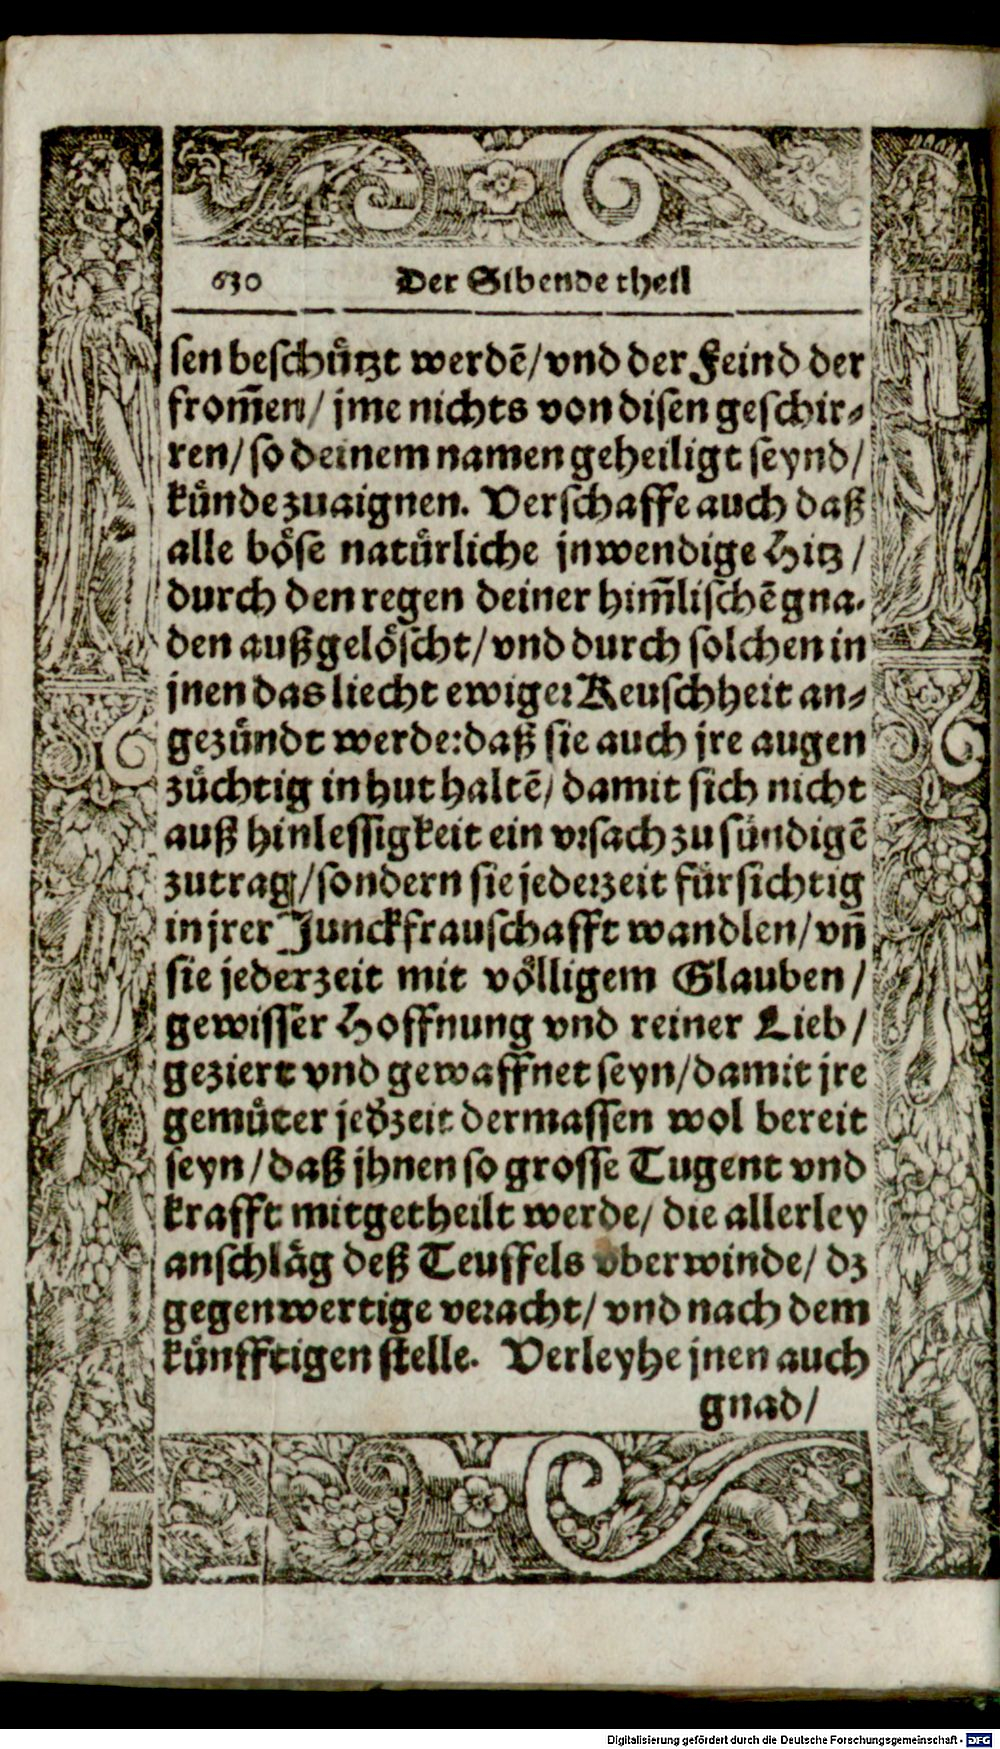 630 Der Sibende theil
sen beschuͤtzt werdẽ/ vnd der Feind der
from̃en/ jme nichts von disen geschir⸗
ren/ so deinem namen geheiligt seynd/
kuͤnde zuaignen. Verschaffe auch daß
alle boͤse natuͤrliche jnwendige Hitz/
durch den regen deiner him̃lischẽ gna⸗
den außgeloͤscht/ vnd durch solchen in
jnen das liecht ewiger Keuschheit an⸗
gezuͤndt werde: daß sie auch jre augen
zuͤchtig in hut haltẽ/ damit sich nicht
auß hinlessigkeit ein vrsach zu suͤndigẽ
zutrag/ sondern sie jederzeit fuͤrsichtig
in jrer Junckfrauschafft wandlen/ vñ
sie jederzeit mit voͤlligem Glauben/
gewisser Hoffnung vnd reiner Lieb/
geziert vnd gewaffnet seyn/ damit jre
gemuͤter jed̃zeit dermassen wol bereit
seyn/ daß jhnen so grosse Tugent vnd
krafft mitgetheilt werde/ die allerley
anschlaͤg deß Teuffels vberwinde/ dz
gegenwertige veracht/ vnd nach dem
kuͤnfftigen stelle. Verleyhe jnen auch
gnad/
Digitalisierung gefördert durch die Deutsche Forschungsgemeinschaft - DFG